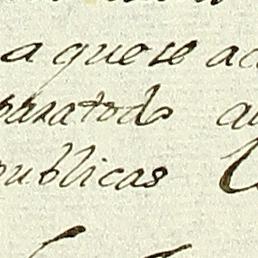 a que se ac
para todo a
publicas